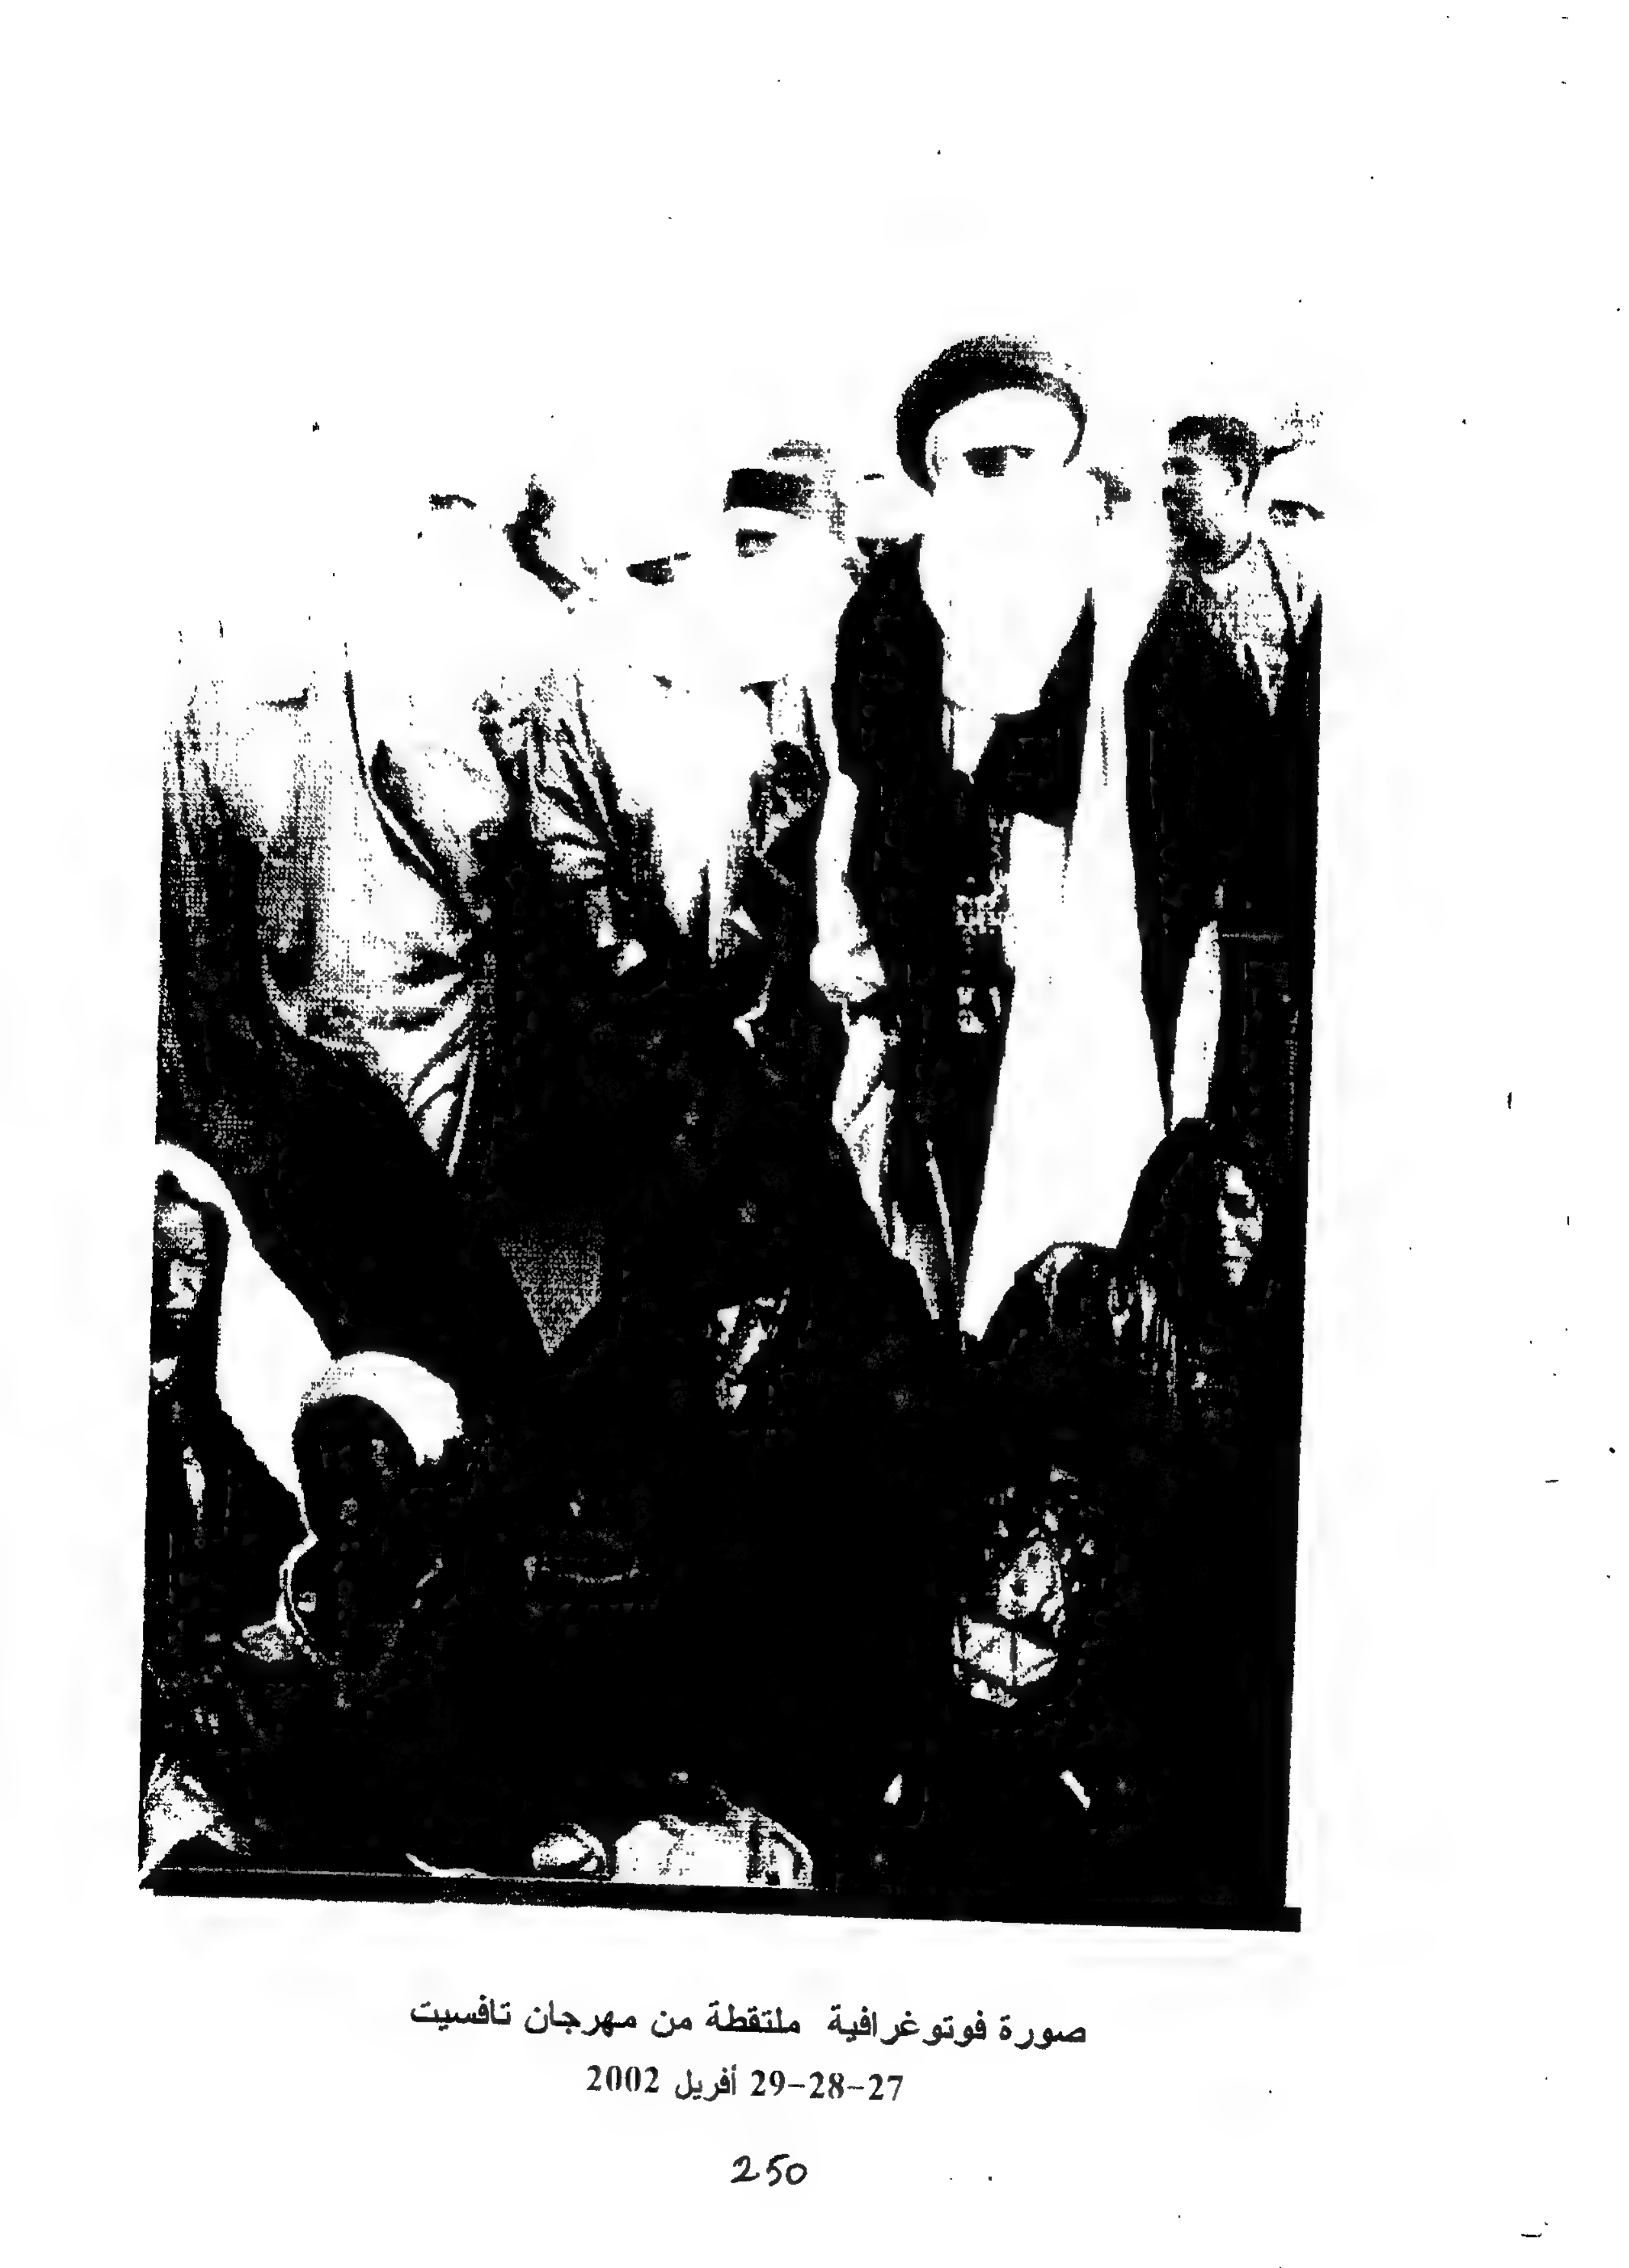 صورة فوتوغرافية ملتقطة من مهرجان تافسيت
27-28-29 أفريل 2002
250